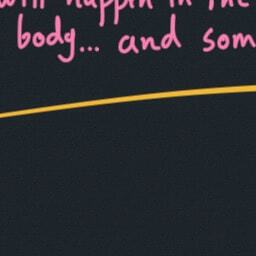 will happen in the
body... and som